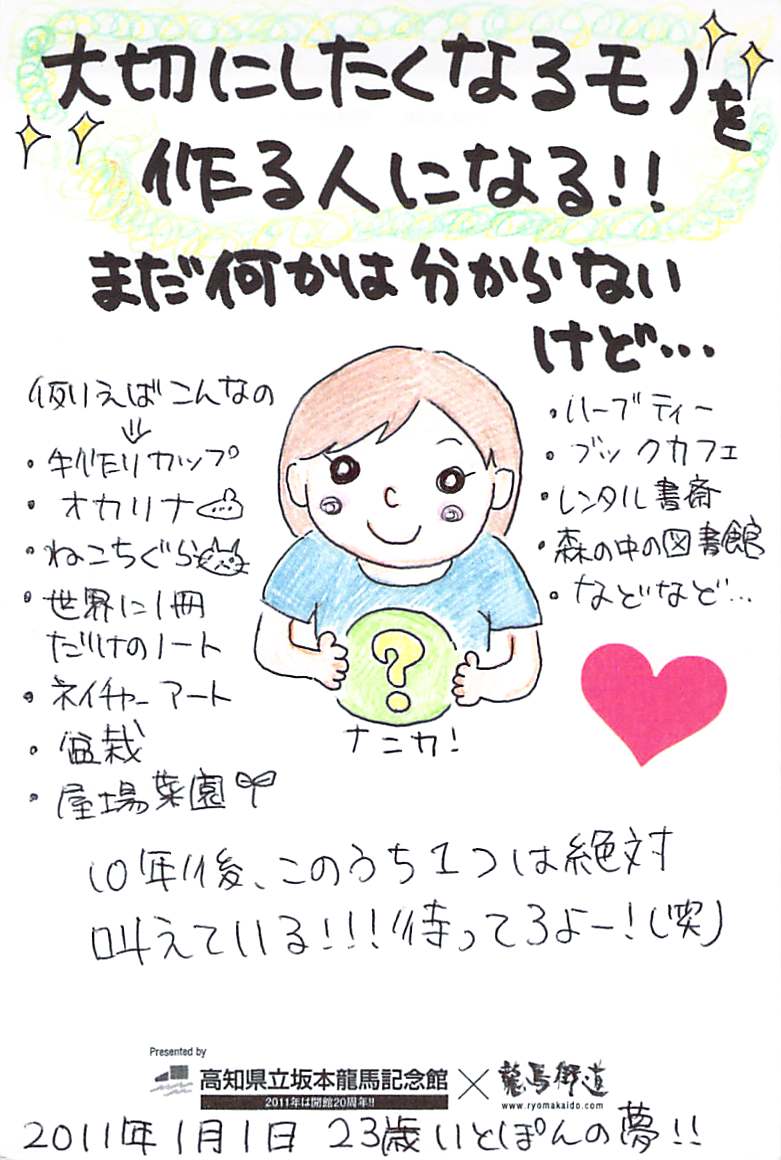 大切にしたくなるモノを
作る人になる!!
まだ何かは分からない
けど…
例えばこんなの
・手作りカップ
・オカリナ
・ねこちぐら
・世界に1冊
だけのノート
・ネイチャーアート
・盆栽
・屋場菜園
・ハーブティー
・ブックカフェ
・レンタル書斎
・森の中の図書館
・などなど…
?
ナニカ!
10年後、このうち1つは絶対
叶えている!!!待ってろよー!(笑)
Presented by
高知県立坂本龍馬記念館
2011年は開館20周年!!
×
龍馬街道
www.ryomakaido.com
2011年1月1日 23歳いとぽんの夢!!